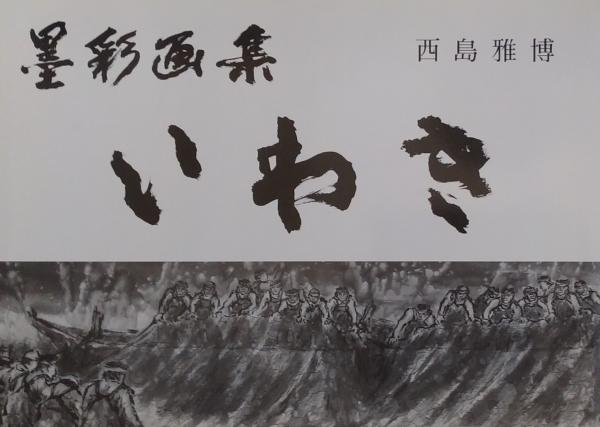 墨彩画集
西島雅博
いわき